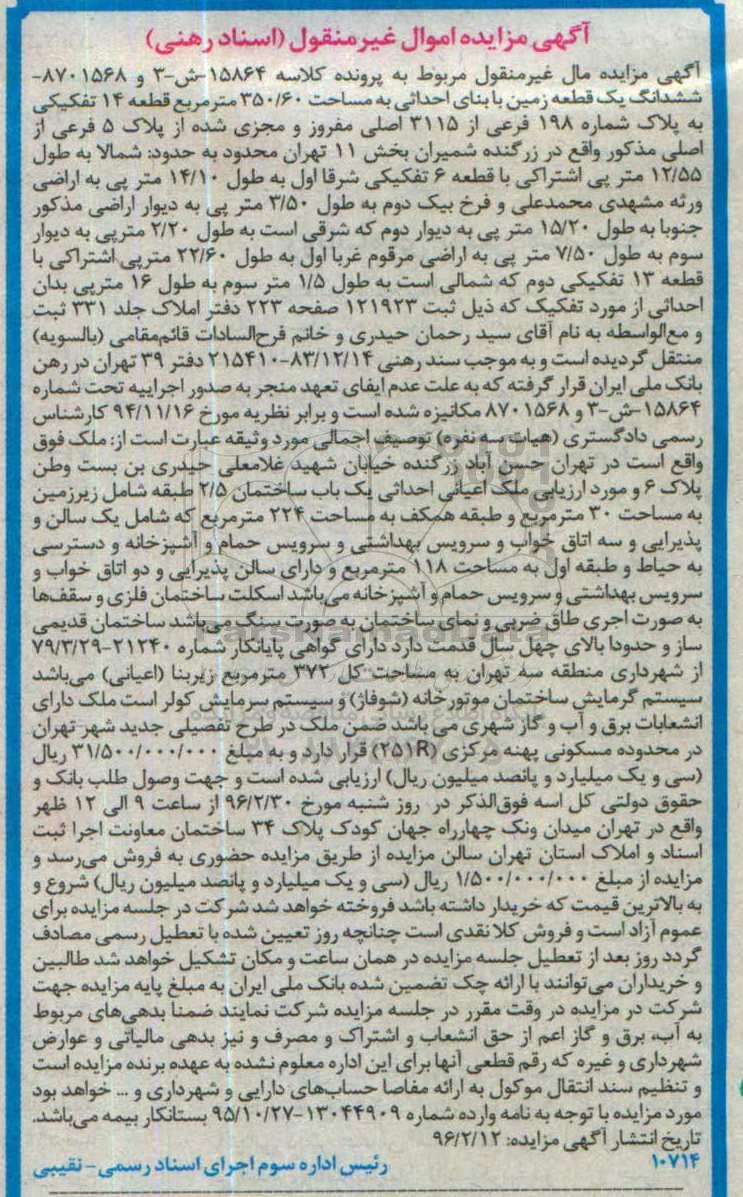 آگهی مزایده اموال غیرمنقول (اسناد رهنی)
آگهی مزایده مال غیرمنقول مربوط به پرونده کلاسه ۱۵۸۶۴-ش-۳ و ۸۷۰۱۵۶۸-
ششدانگ یک قطعه زمین با بنای احداثی به مساحت ۳۵۰/۶۰ مترمربع قطعه ۱۴ تفکیکی
به پلاک شماره ۱۹۸ فرعی از ۳۱۱۵ اصلی مفروز و مجزی شده از پلاک ۵ فرعی از
اصلی مذکور واقع در زرگنده شمیران بخش ۱۱ تهران محدود به حدود: شمالا به طول
۱۲/۵۵ متر پی اشتراکی با قطعه ۶ تفکیکی شرقا اول به طول ۱۴/۱۰ متر پی به اراضی
ورثه مشهدی محمدعلی و فرخ بیک دوم به طول ۳/۵۰ متر پی به دیوار اراضی مذکور
جنوبا به طول ۱۵/۲۰ متر پی به دیوار دوم که شرقی است به طول ۲/۲۰ مترپی به دیوار
سوم به طول ۷/۵۰ متر پی به اراضی مرقوم غربا اول به طول ۲۲/۶۰ مترپی اشتراکی با
قطعه ۱۳ تفکیکی دوم که شمالی است به طول ۱/۵ متر سوم به طول ۱۶ مترپی بدان
احداثی از مورد تفکیک که ذیل ثبت ۱۲۱۹۲۳ صفحه ۲۲۳ دفتر املاک جلد ۳۳۱ ثبت
و مع‌الواسطه به نام آقای سید رحمان حیدری و خانم فرح‌السادات قائم‌مقامی (بالسویه)
منتقل گردیده است و به موجب سند رهنی ۸۳/۱۲/۱۴-۲۱۵۴۱۰ دفتر ۳۹ تهران در رهن
بانک ملی ایران قرار گرفته که به علت عدم ایفای تعهد منجر به صدور اجراییه تحت شماره
۱۵۸۶۴-ش-۳ و ۸۷۰۱۵۶۸ مکانیزه شده است و برابر نظریه مورخ ۹۴/۱۱/۱۶ کارشناس
رسمی دادگستری (هیات سه نفره) توصیف اجمالی مورد وثیقه عبارت است از: ملک فوق
واقع است در تهران حسن آباد زرگنده خیابان شهید غلامعلی حیدری بن بست وطن
پلاک ۶ و مورد ارزیابی ملک اعیانی احداثی یک باب ساختمان ۲/۵ طبقه شامل زیرزمین
به مساحت ۳۰ مترمربع و طبقه همکف به مساحت ۲۲۴ مترمربع که شامل یک سالن و
پذیرایی و سه اتاق خواب و سرویس بهداشتی و سرویس حمام و آشپزخانه و دسترسی
به حیاط و طبقه اول به مساحت ۱۱۸ مترمربع و دارای سالن پذیرایی و دو اتاق خواب و
سرویس بهداشتی و سرویس حمام و آشپزخانه می‌باشد اسکلت ساختمان فلزی و سقف‌ها
به صورت اجری طاق ضربی و نمای ساختمان به صورت سنگ می‌باشد ساختمان قدیمی
ساز و حدودا بالای چهل سال قدمت دارد دارای گواهی پایانکار شماره ۲۱۲۴۰-۷۹/۳/۲۹
از شهرداری منطقه سه تهران به مساحت کل ۳۷۲ مترمربع زیربنا (اعیانی) می‌باشد
سیستم گرمایش ساختمان موتورخانه (شوفاژ) و سیستم سرمایش کولر است ملک دارای
انشعابات برق و آب و گاز شهری می باشد ضمن ملک در طرح تفصیلی جدید شهر تهران
در محدوده مسکونی پهنه مرکزی (۲۵۱R) قرار دارد و به مبلغ ۳۱/۵۰۰/۰۰۰/۰۰۰ ریال
(سی و یک میلیارد و پانصد میلیون ریال) ارزیابی شده است و جهت وصول طلب بانک و
حقوق دولتی کل اسه فوق‌الذکر در روز شنبه مورخ ۹۶/۲/۳۰ از ساعت ۹ الی ۱۲ ظهر
واقع در تهران میدان ونک چهارراه جهان کودک پلاک ۳۴ ساختمان معاونت اجرا ثبت
اسناد و املاک استان تهران سالن مزایده از طریق مزایده حضوری به فروش می‌رسد و
مزایده از مبلغ ۱/۵۰۰/۰۰۰/۰۰۰ ریال (سی و یک میلیارد و پانصد میلیون ریال) شروع و
به بالاترین قیمت که خریدار داشته باشد فروخته خواهد شد شرکت در جلسه مزایده برای
عموم آزاد است و فروش کلا نقدی است چنانچه روز تعیین شده با تعطیل رسمی مصادف
گردد روز بعد از تعطیل جلسه مزایده در همان ساعت و مکان تشکیل خواهد شد طالبین
و خریداران می‌توانند با ارائه چک تضمین شده بانک ملی ایران به مبلغ پایه مزایده جهت
شرکت در مزایده در وقت مقرر در جلسه مزایده شرکت نمایند ضمنا بدهی‌های مربوط
به آب، برق و گاز اعم از حق انشعاب و اشتراک و مصرف و نیز بدهی مالیاتی و عوارض
شهرداری و غیره که رقم قطعی آنها برای این اداره معلوم نشده به عهده برنده مزایده است
و تنظیم سند انتقال موکول به ارائه مفاصا حساب‌های دارایی و شهرداری و ... خواهد بود
مورد مزایده با توجه به نامه وارده شماره ۱۳۰۴۴۹۰۹-۹۵/۱۰/۲۷ بستانکار بیمه می‌باشد.
تاریخ انتشار آگهی مزایده: ۹۶/۲/۱۲
۱۰۷۱۴ رئیس اداره سوم اجرای اسناد رسمی- نقیبی